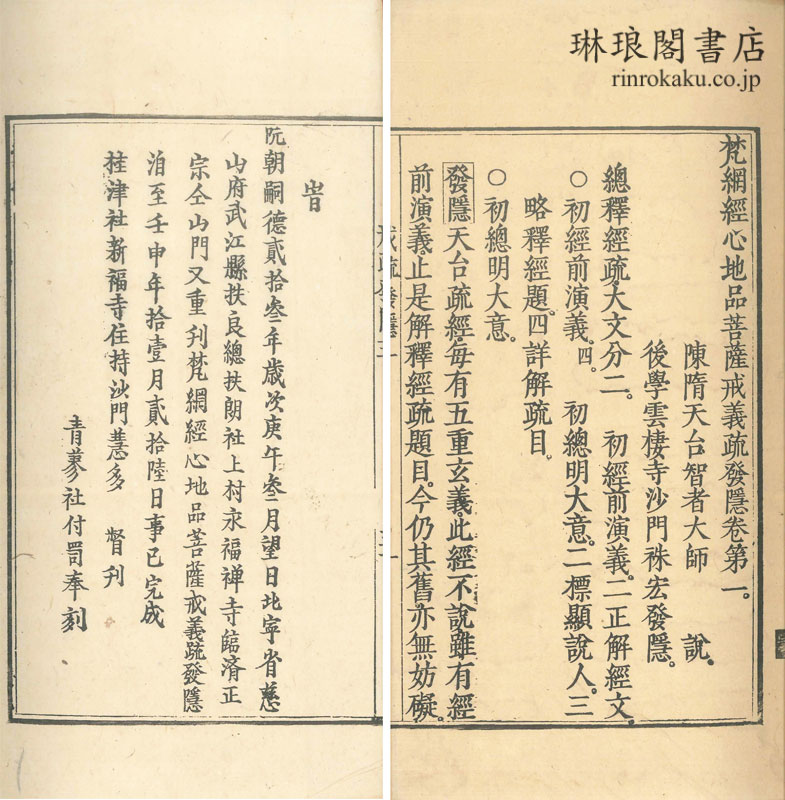 琳琅閣書店
rinrokaku.co.jp
梵網經心地品菩薩戒義疏發隱卷第一。
陳隋天台智者大師 說。
後學雲棲寺沙門袾宏發隱。
總釋經疏。大文分二。 初經前演義。二正解經文。
○初經前演義。四。 初總明大意。二標顯說人。三
略釋經題。四詳解疏目。
○初總明大意。
發隱天台疏經。每有五重玄義。此經不說雖有經
前演義。止是解釋經疏題目。今仍其舊。亦無妨礙。
戒疏發隱
旹
阮朝嗣德貳拾叁年歲次庚午叁月望日北寧省慈
山府武江縣扶良總扶朗社上村永福禅寺臨濟正
宗仝山門又重刋梵網經心地品菩薩戒義疏發隱
洎至壬申年拾壹月貳拾陸日事已完成
桂津社新福寺住持沙門慧多 督刋
青蓼社付奉刻